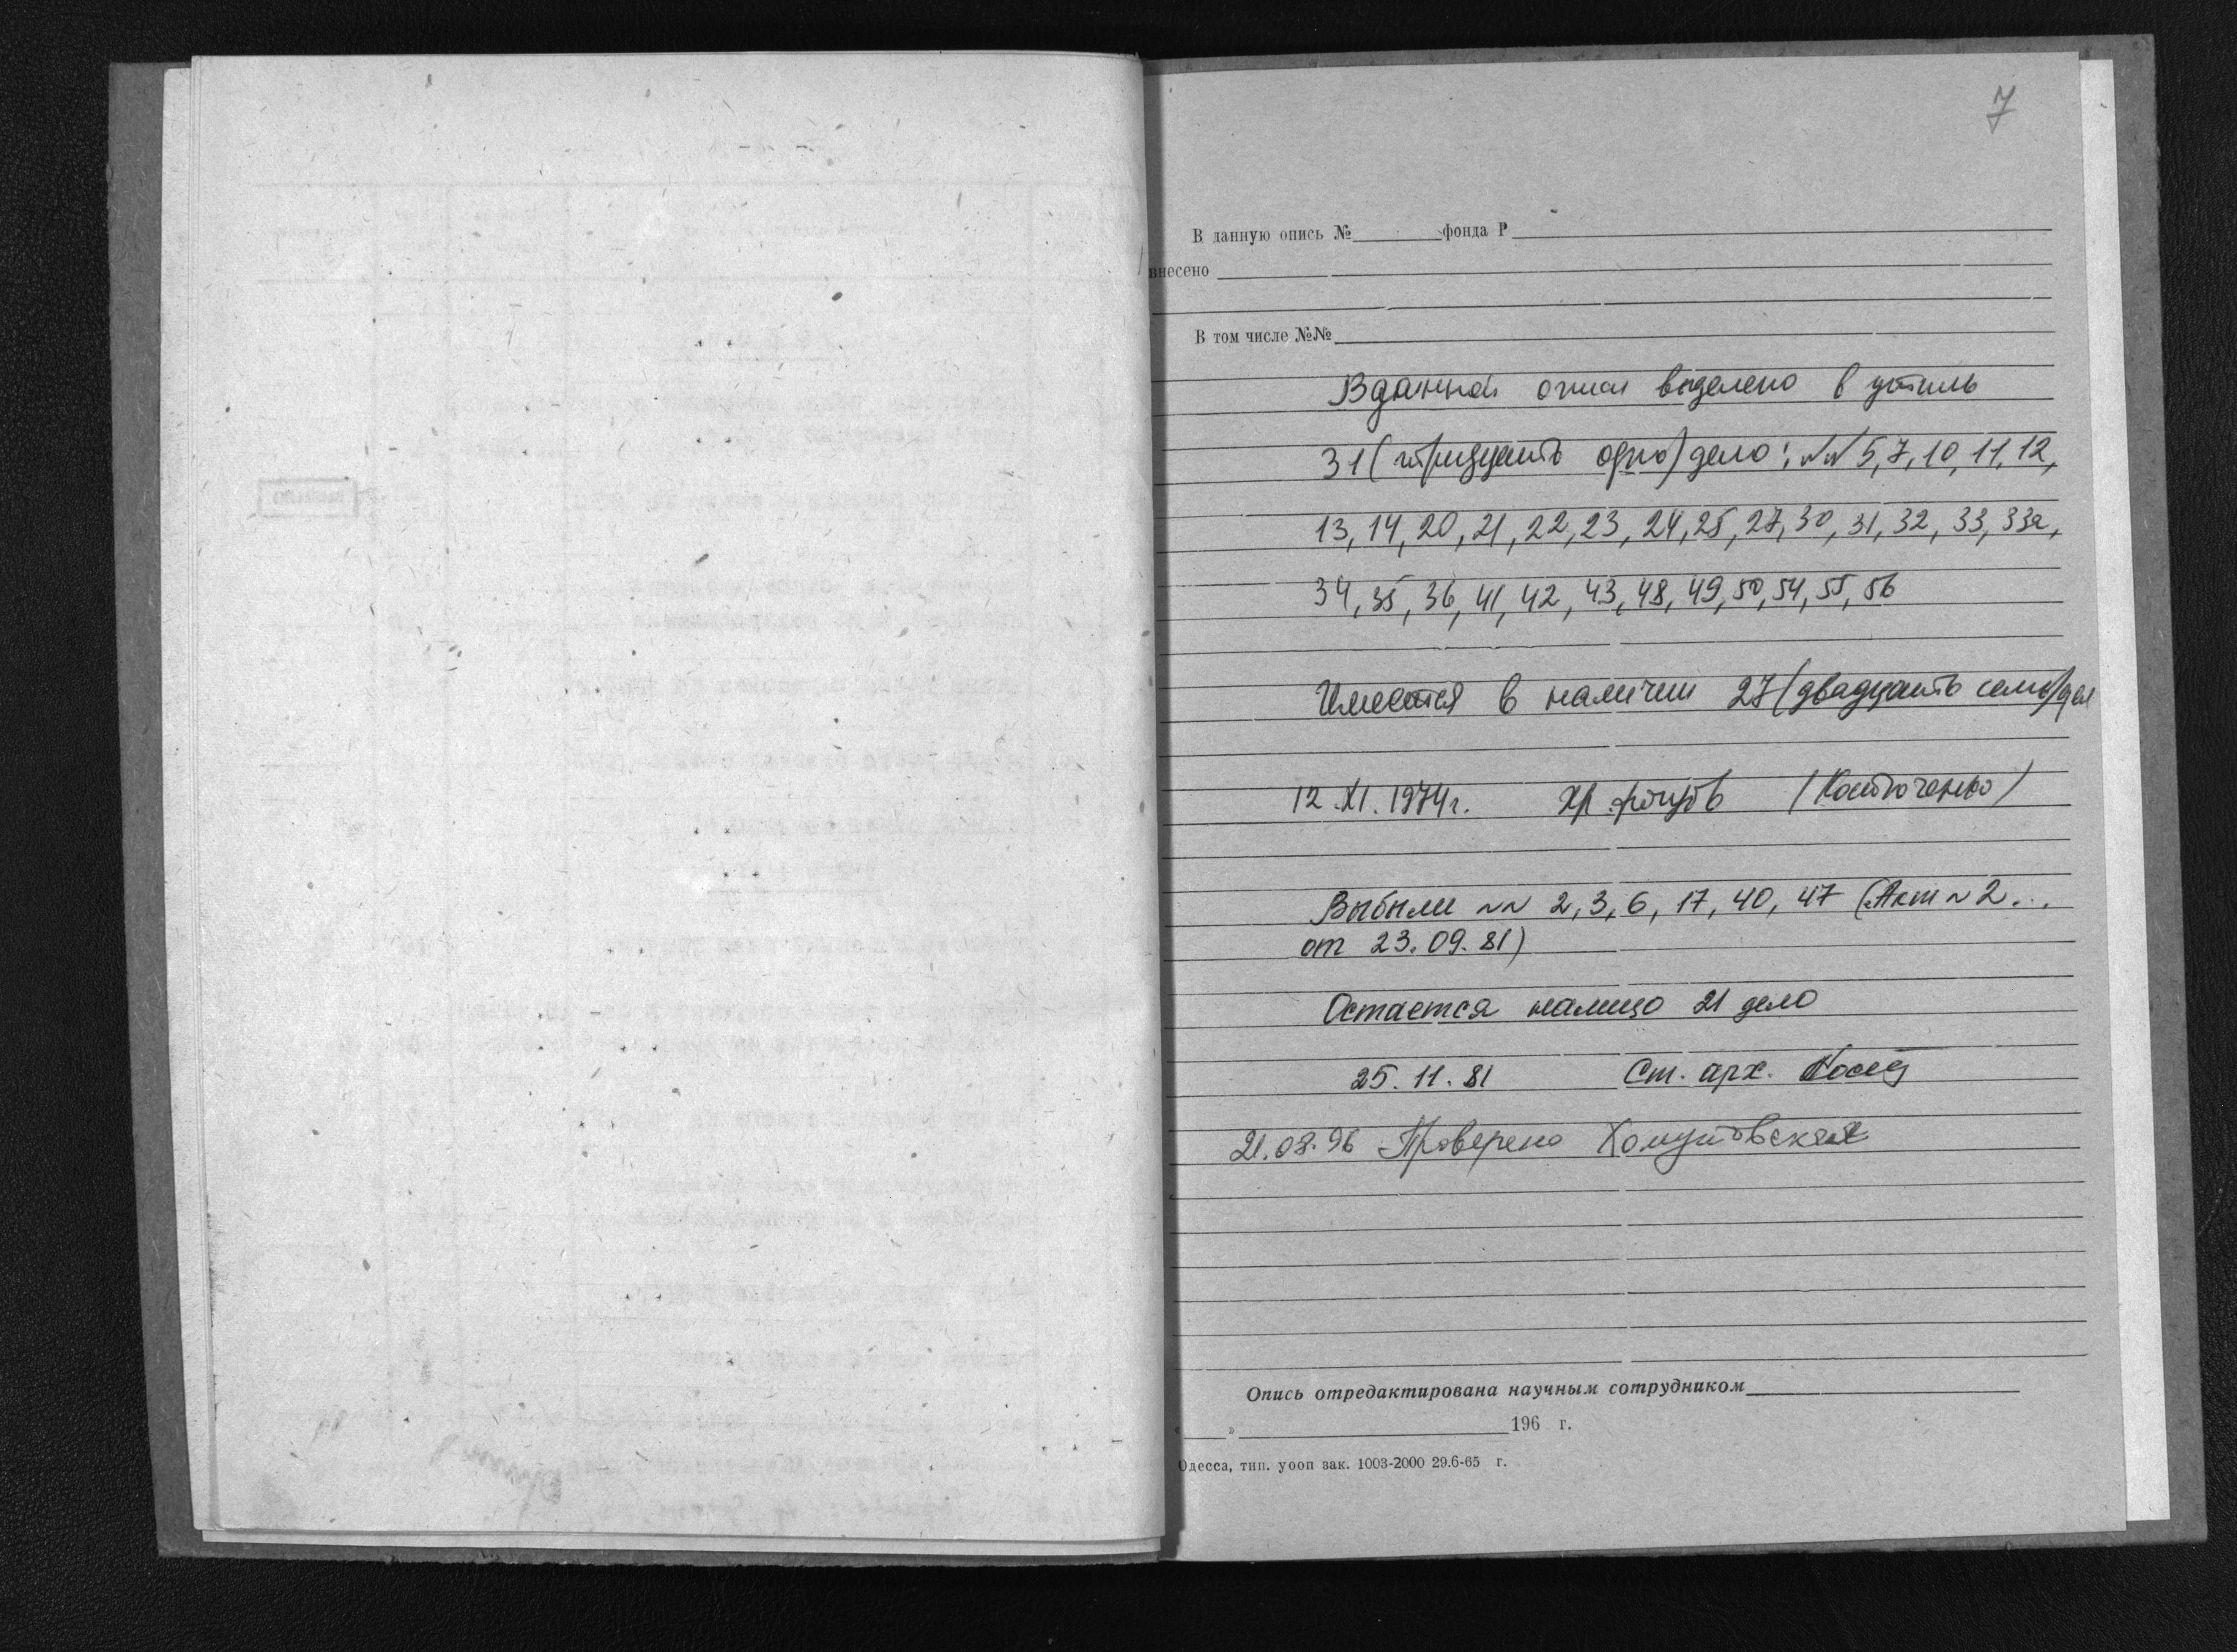 7
В данную опись № фонда Р
внесено
В том числе №№
В данной описи выделено в утиль
31 (тридцать одно) дело: №№ 5, 7, 10, 11, 12,
13, 14, 20, 21, 22, 23, 24, 25, 27, 30, 31, 32, 33, 33а,
34, 35, 36, 41, 42, 43, 48, 49, 50, 54, 55, 56
Имеется в наличии 27 (двадцать семь) дел
12.XI.1974г. хр. фондов
Выбыли №№ 2, 3, 6, 17, 40, 47 (Акт № 2...
от 23.09.81)
Остается налицо 21 дело
25.11.81 Ст. арх.
21.08.96 Проверено
Опись отредактирована научным сотрудником
« » 196 г.
Одесса, тип. уооп зак. 1003-2000 29.6-65 г.